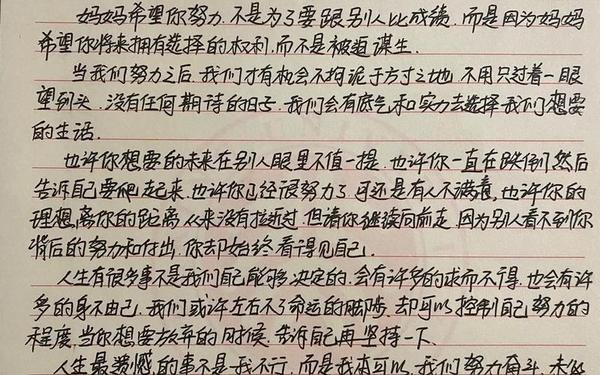 妈妈希望你努力.不是为了要跟别人比成绩.而是因为妈妈
希望你将来拥有选择的权利.而不是被迫谋生.
当我们努力之后.我们才有机会不拘泥于方寸之地.不用只过着一眼
望到头.没有任何期待的日子.我们会有底气和实力去选择我们想要
的生活.
也许你想要的未来在别人眼里不值一提.也许你一直在跌倒然后
告诉自己要爬起来.也许你已经很努力了.可还是有人不满意.也许你的
理想.离你的距离从来没有拉近过.但请你继续向前走.因为别人看不到你
背后的努力和付出.你却始终看得见自己.
人生有很多事不是我们自己能够决定的.会有许多的求而不得.也会有许
多的身不由己.我们或许左右不了命运的脚步.却可以控制自己努力的
程度.当你想要放弃的时候.告诉自己再坚持一下.
人生最遗憾的事不是我不行.而是我本可以.我们努力奋斗.